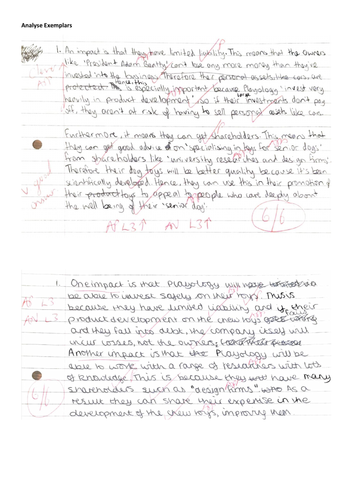 Analyse Exemplars
1. An impact is that they have limited liability. This means that the owners
like 'President Adam Beatty' can't lose any more money than they've
invested into the business. Therefore their personal assets like cars, are
protected. This is especially important because Playology 'invest very
heavily in product development', so if their investments don't pay
off, they aren't at risk of having to sell personal assets like car.
Furthermore, it means they can get shareholders. This means that
they can get good advice on 'specialising in toys for senior dogs'
from shareholders like 'university researches and design firms'.
Therefore their dog toys will be better quality because it's been
scientifically developed. Hence, they can use this in their promotion of
their product to appeal to people who are deeply about
the well being of their 'senior dog'.
V. good
answer
AP L3↑ AN L3↑
6/6
1. One impact is that Playology will
be able to invest safely on their toys. This is
because they have limited liability and if their
product development on the chew toys
and they fall into debt, the company itself will
incur losses, not the owners.
Another impact is that the Playology will be
able to work with a range of researchers with lots
of knowledge. This is because they have many
shareholders such as "design firms". As a
result they can share their expertise in the
development of the chew toys, improving them
AP L3
AN L3
6/6